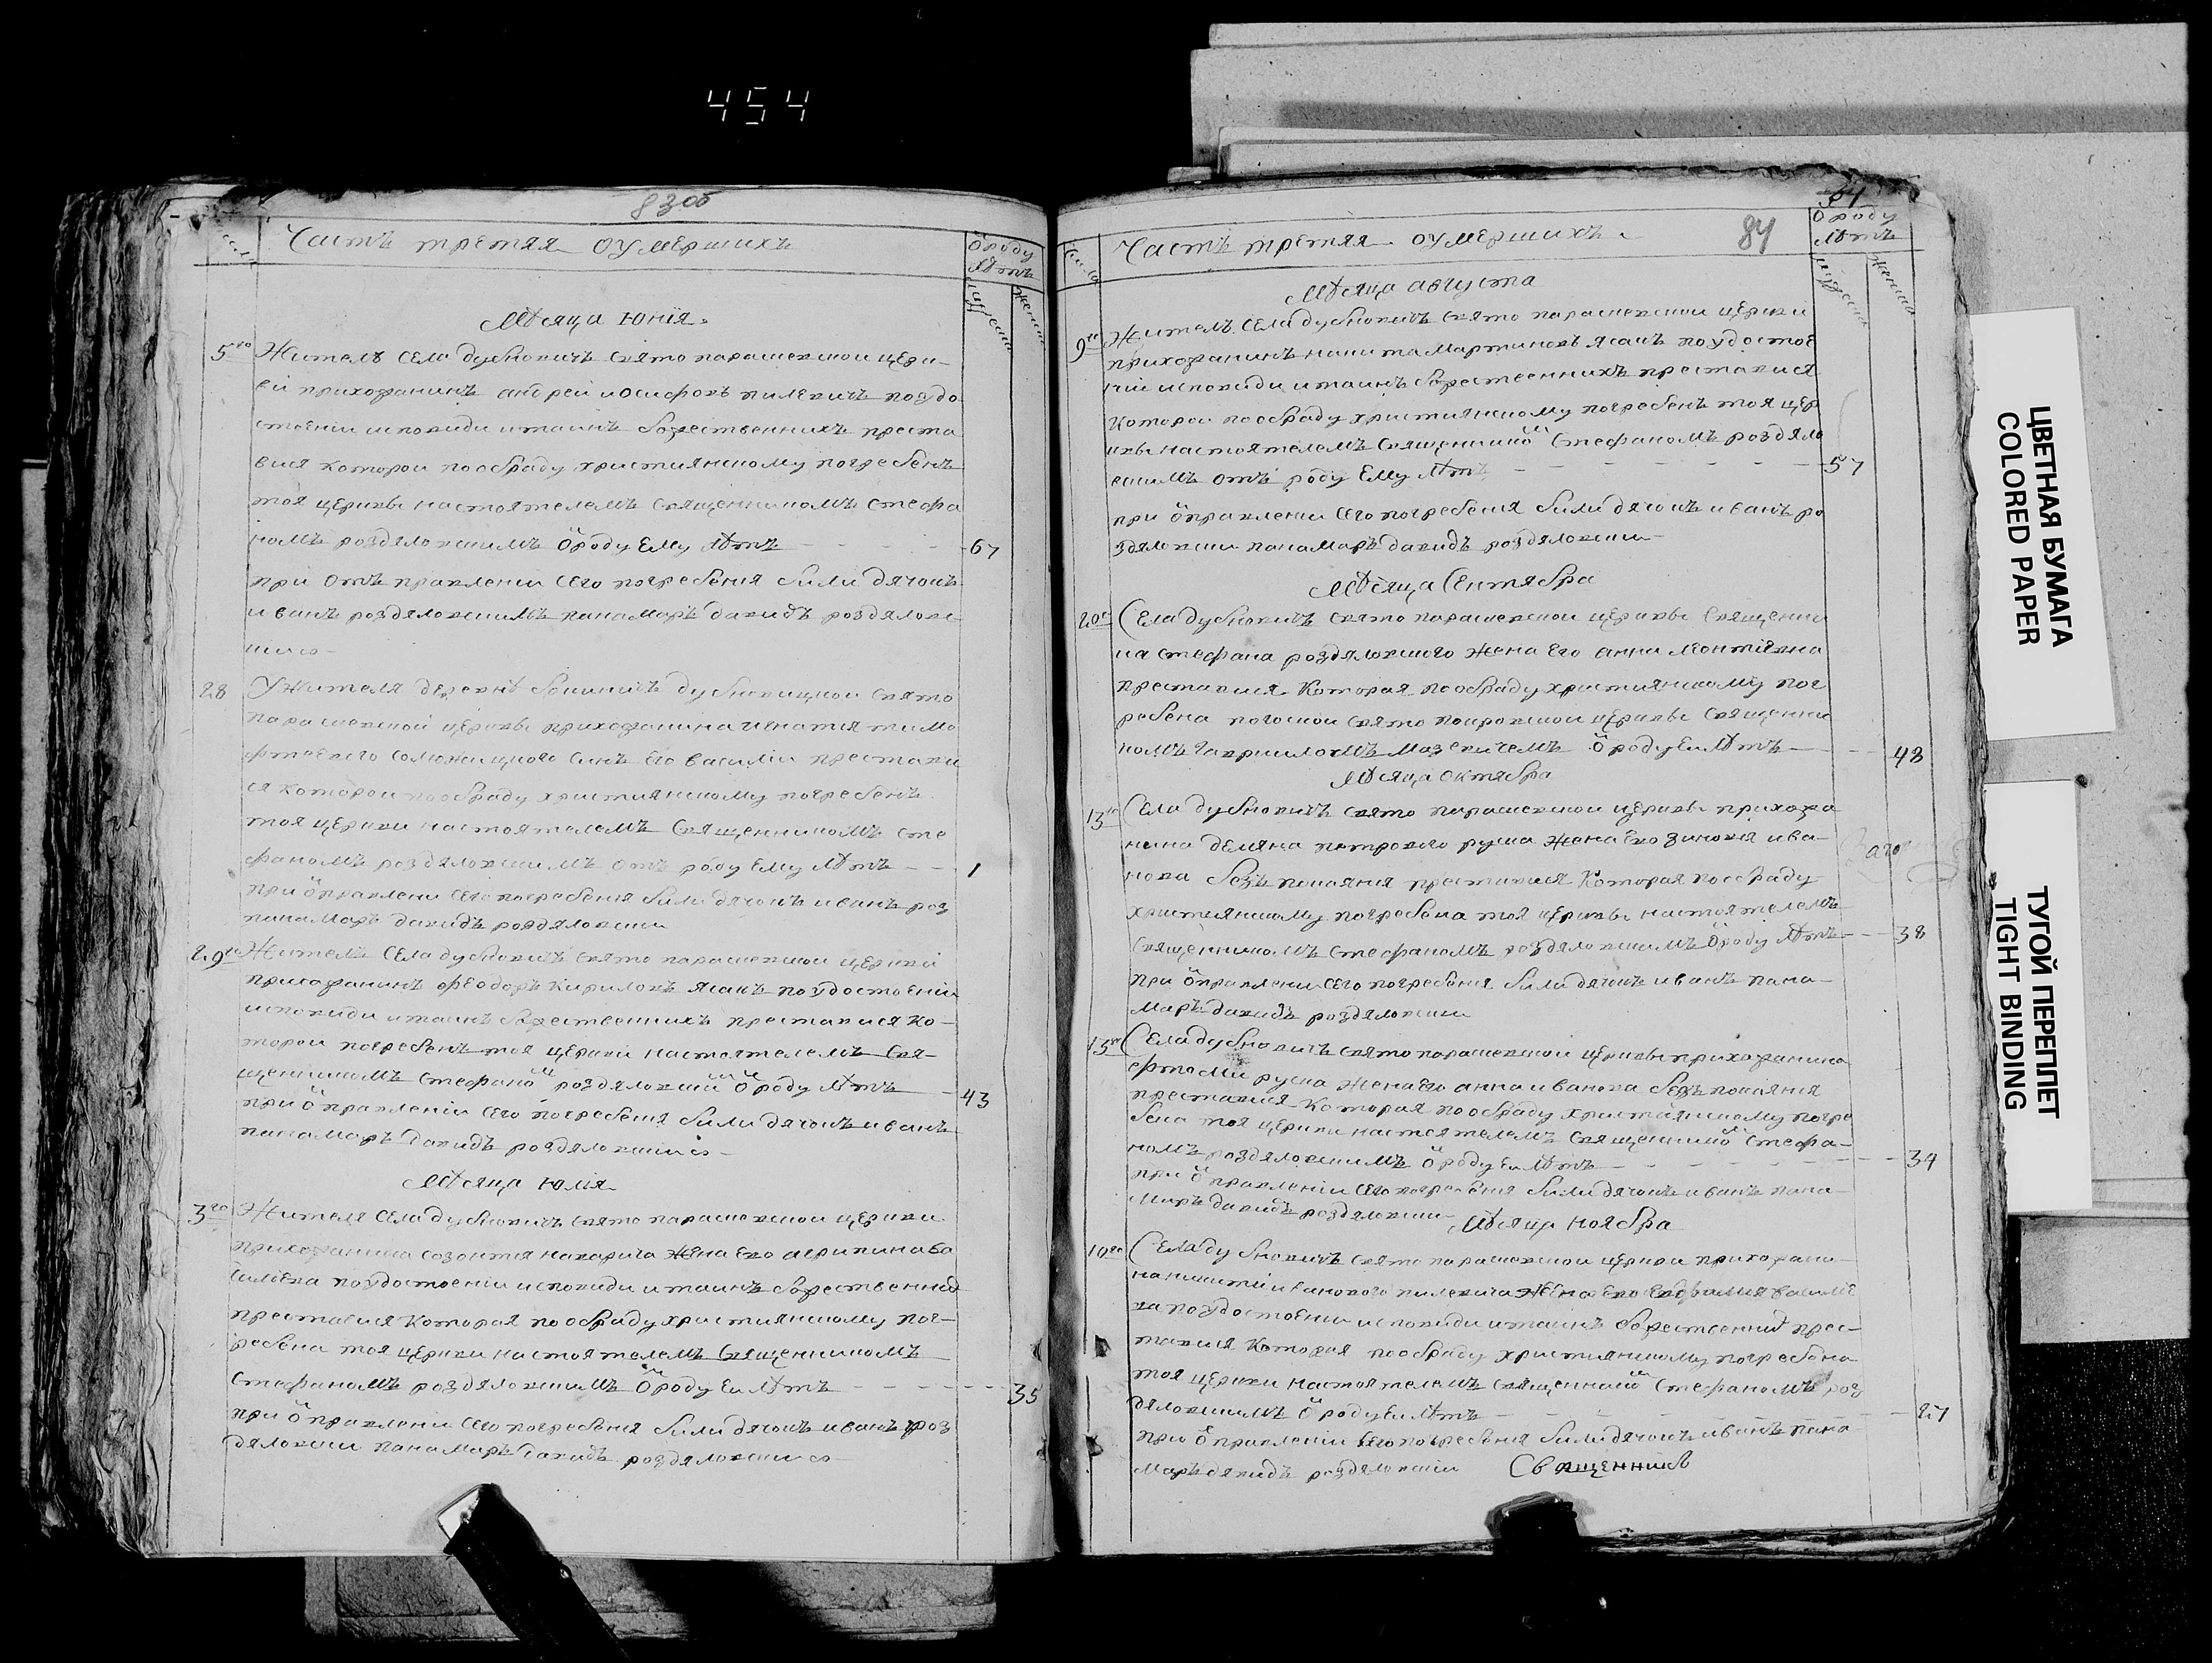 454
83об
Часть третяя оумершихъ
ѿ роду
лѣтъ
Мѣсяца Юнія.
5го Жителъ села дубновичъ свято парашевской церк-
ви прихожанинъ андрей иосифовъ пилевичъ по удо
стоеніи исповиди и таинъ божественнихъ преста
вися которои по обряду християнскому погребенъ
тоя церкви настоятелемъ священникомъ стефа
номъ роздяловскимъ ѿ роду ему лѣтъ 67
при отъправленіи сего погребеня били дячокъ
иванъ роздяловскимъ панамаръ давидъ роздяловс
кию
28 У жителя деревнѣ дубновицкой свято
парашевской церкви прихожанина игнатия тимо
фтеевого синъ его василіи престави
ся которои по обряду християнскому погребенъ
тоя церкви настоятелемъ священникомъ сте
фаномъ роздяловскимъ отъ роду ему лѣтъ 1
при ѿправлени сего погребеня били дячокъ иванъ роз
панамаръ давидъ роздяловски
29го Жителъ села дубновичъ свято парашевской церкви
прихожанинъ феодоръ кириловъ ясакъ по удостоеніи
исповиди и таинъ божественнихъ преставися ко-
торои погребенъ тоя церкви настоятелемъ свя-
щенникомъ стефаномъ роздяловский ѿ роду лѣтъ 43
при ѿправленіи сего погребеня били дячокъ иванъ
панамаръ давидъ роздяловскию
Мѣсяца Юлія
3го Жителя села дубновичъ свято парашевской церкви
прихожанина созонтия макарича жена его агрипина ва
силева по удостоеніи исповиди и таинъ божественних
преставися которая по обряду християнскому пог-
ребена тоя церкви настоятелемъ священникомъ
стефаномъ роздяловскимъ ѿ роду еи лѣтъ 35
при ѿправлени сего погребеня били дячокъ иванъ роз
дяловски панамаръ давидъ роздяловскию
84
числа
Часть третяя оумершихъ
ѿ роду
лѣтъ
Мѣсяца августа
9го Жителъ села дубновичъ свято парашевской церкви
прихожанинъ никита мартиновъ ясакъ по удостое
ніи исповиди и таинъ божественнихъ преставися
которои по обряду християнскому погребенъ тоя цер
квы настоятелемъ священникомъ стефаномъ роздяло
вскимъ отъ роду ему лѣтъ 57
при ѿправлени сего погребения били дячокъ иванъ ро
здяловски панамаръ давидъ роздяловски
Мѣсяца Сентября
20го Села дубновичъ свято парашевской церквы священни
ка стефана роздяловского жена его анна леонтіевна
преставися которая по обряду християнскому пог
ребена свято покровской церквы священни
комъ гавриломъ мазевичемъ ѿ роду еи лѣтъ 48
Мѣсяца Октября
13го Села дубновичъ свято парашевской церквы прихожа
нина демяна петрового руща жена его зиновия ива-
нова безъ покаяния преставися которая по обряду
християнскому погребена тоя церквы настоятелемъ
священникомъ стефаномъ роздяловскимъ ѿ роду лѣтъ 38
при ѿправлени сего погребеня били дячокъ иванъ пана-
маръ давидъ роздяловски
15го Села дубновичъ свято парашевской церквы прихожанина
жена его анна иванова безъ покаяния
преставися которая по обряду християнскому погре
бена тоя церкви настоятелемъ священникомъ стефа-
номъ роздяловскимъ ѿ роду еи лѣтъ 34
при ѿправленіи сего погребеня били дячокъ иванъ пана-
маръ давидъ роздяловски
Мѣсяца Ноября
10го Села дубновичъ свято парашевской церкви прихожани-
на иванового пилевича жена его евфимия василіе
ва по удостоении исповиди и таинъ божественних прес-
тавися которая по обряду християнскому погребена
тоя церкви настоятелемъ священникомъ стефаномъ роз
дяловскимъ ѿ роду еи лѣтъ 27
при ѿправленіи сего погребеня били дячокъ иванъ пана
маръ давидъ роздяловскіи Священникъ
ЦВЕТНАЯ БУМАГА
COLORED PAPER
ТУГОЙ ПЕРЕПЛЕТ
TIGHT BINDING